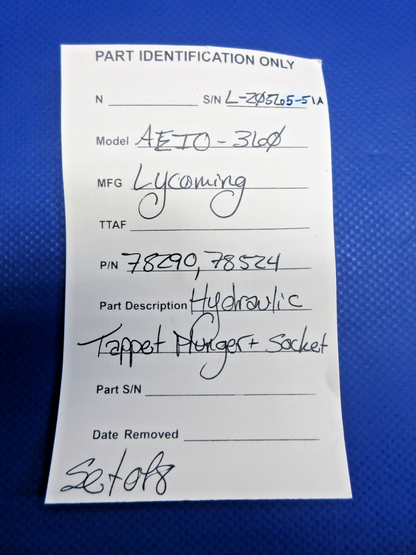 PART IDENTIFICATION ONLY
N ________ S/N L-20565-51A
Model AEIO-360
MFG Lycoming
TTAF
P/N 78290, 78524
Part Description Hydraulic
Tappet Plunger + Socket
Part S/N
Date Removed
Set of 8